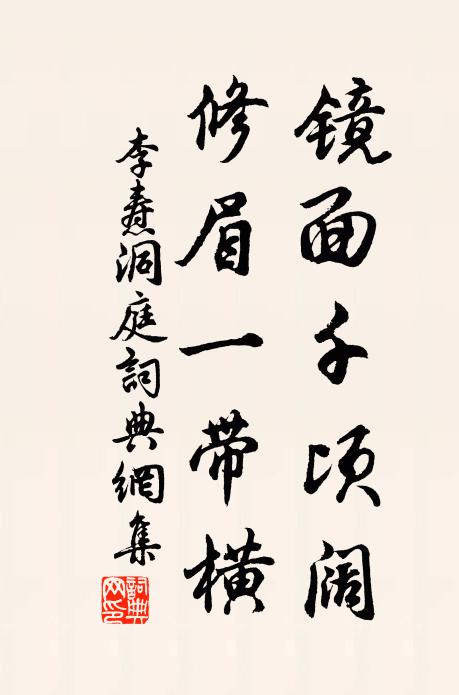 镜面千顷阔
修眉一带横
李焘洞庭詞典網集
詞典
网印